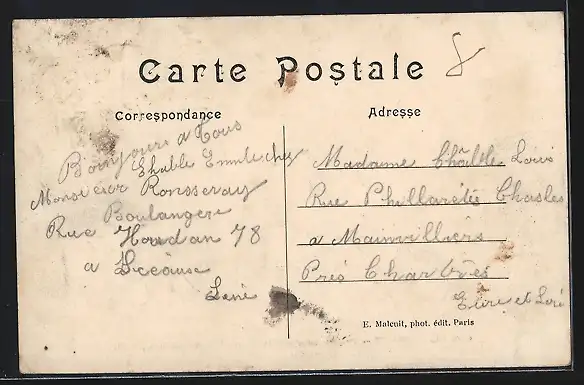 Carte Postale
8
Correspondance
Bonjours a Tous
Chable Emile chez
Monsieur Ronsseray
Boulangerie
Rue Houdan 78
a Sceause
Seine
Adresse
Madame Châble Louis
Rue Phillarétis Chasles
a Mainvilliers
Près Chartres
Eure et Loir
E. Malcuit, phot. édit. Paris